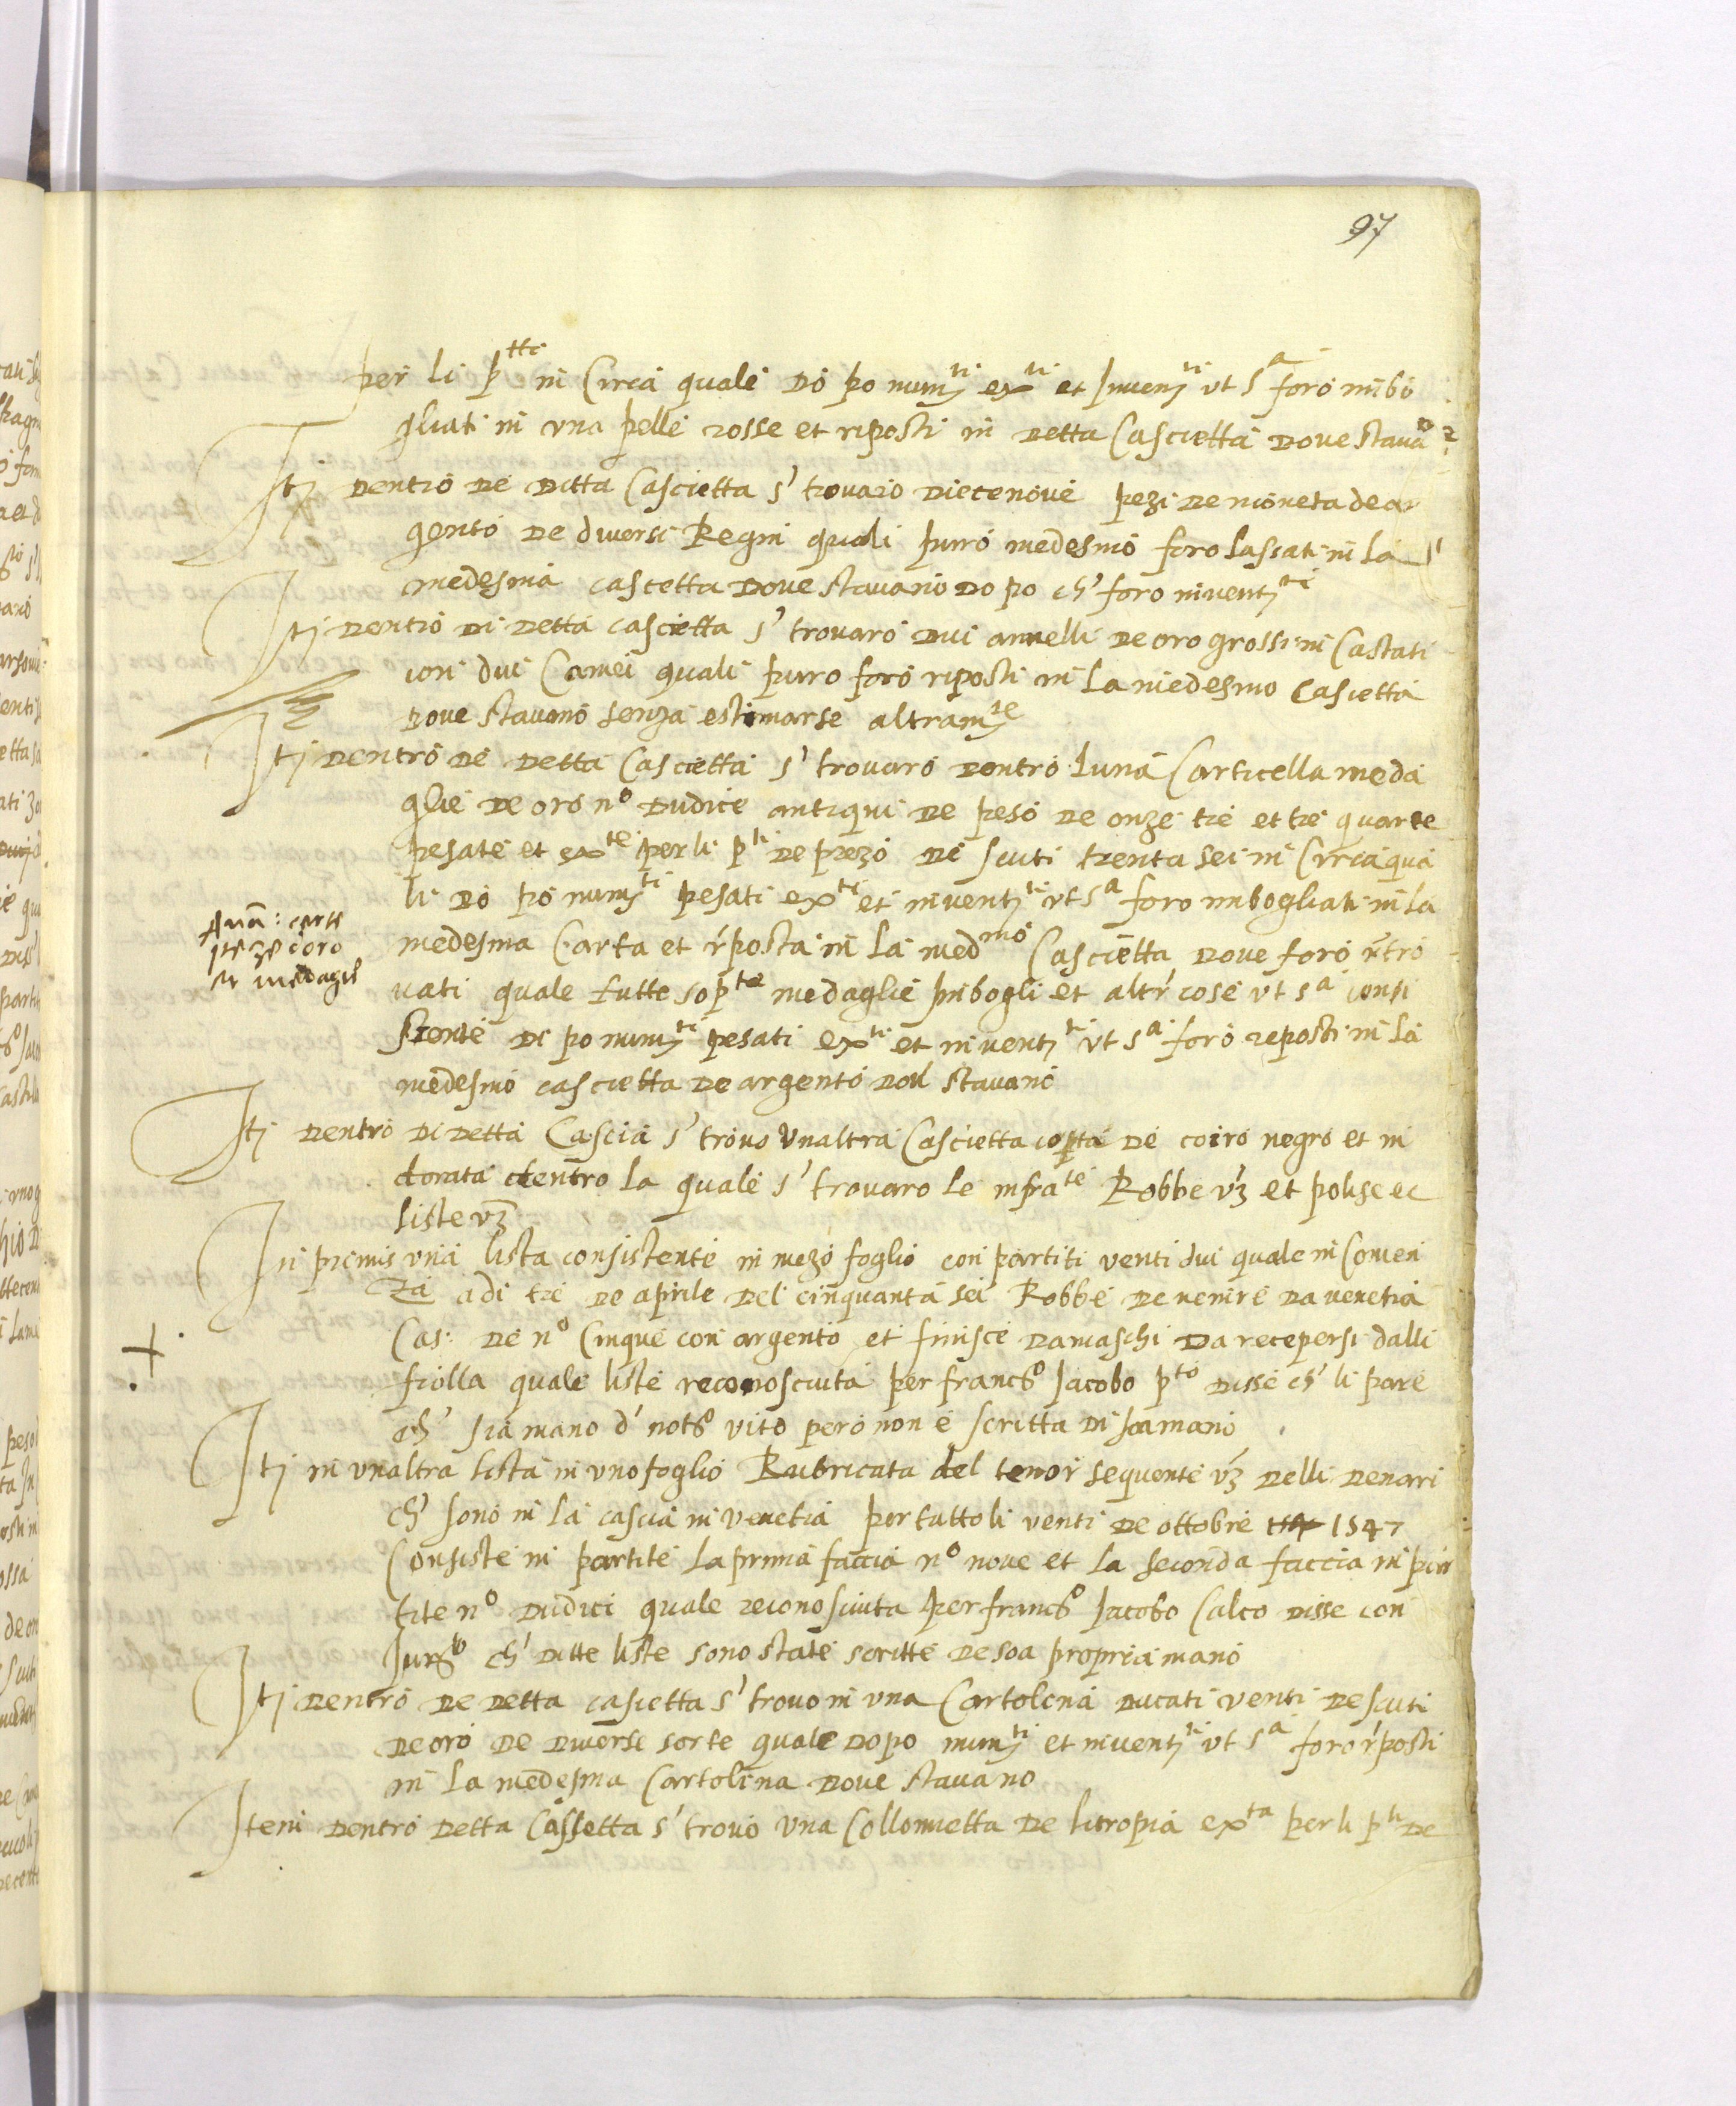 97
per li p^tti in Circa quale do po num^ti ex^ti et Inven^ti ut s^a foro imbo
gliati in una pelle rosse et riposti in detta Cascietta dove stava^o
Itj dentro de ditta Cascietta s' trovaro diecenove pezi de moneta de ar
gento de diversi Regni quali purro medesmo foro lassati in la
medesma cascetta dove stavano do po ch' foro invent^ti
Itj dentro di detta cascietta s' trovaro dui annelli de oro grossi in Castati
con dui Camei quali puro foro riposti in la medesmo Cascietta
dove stavano senza estimarse altram^te
Itj dentro de detta Cascietta s' trovaro dentro una Carticella meda
glie de oro n^o dudice antiqui de peso de onze tre et tre quarte
pesate et ex^te per li p^ti de prezo de scuti trenta sei in Circa qua
li do po num^ti pesati ex^ti et invent^ti ut s^a foro imbogliati in la
medesma Carta et r'posta in la med^mo Cascietta dove foro ritro
vati quale tutte sop^te medaglie inbogli et altr' cose ut s^a consi
stente do po num^ti pesati ex^ti et invent^ti ut s^a foro reposti in la
medesmo cascietta de argento dove stavano
Itj dentro di detta Cascia s' trovo unaltra Cascietta coperta de coiro negro et in
dorata dentro la quale s' trovaro le infra^te Robbe vz et polise et
liste vz
In primis una lista consistente in mezo foglio con partiti venti dui quale in Comen
za adi tre de aprile del cinquanta sei Robbe de venire da venetia
Cas: de n^o Cinque con argento et finisce damaschi da recepersi dalli
fiolla quale liste reconosciuta per franc^o Jacobo p^to disse ch' li pare
ch' sia mano d' not^o vito pero non è scritta di soa mano
Itj in unaltra lista in uno foglio Rubricata del tenor sequente vz delli denari
ch' sono in la cascia in venetia per tutto li venti de ottobre 1547
Consiste in partite la prima faccia n^o nove et la seconda faccia in par
tite n^o dudici quale reconosciuta per franc^o Jacobo Calco disse con
Jur^to ch' ditte liste sono state scritte de soa propria mano
Itj dentro de detta cascietta s' trovo in una Cartolina ducati venti de scuti
de oro de diverse sorte quale dopo num^ti et invent^ti ut s^a foro r'posti
in la medesma Cartolina dove stavano
Item dentro detta Cassetta s' trovo una Collonnetta de litropia ex^ta per li p^ti de